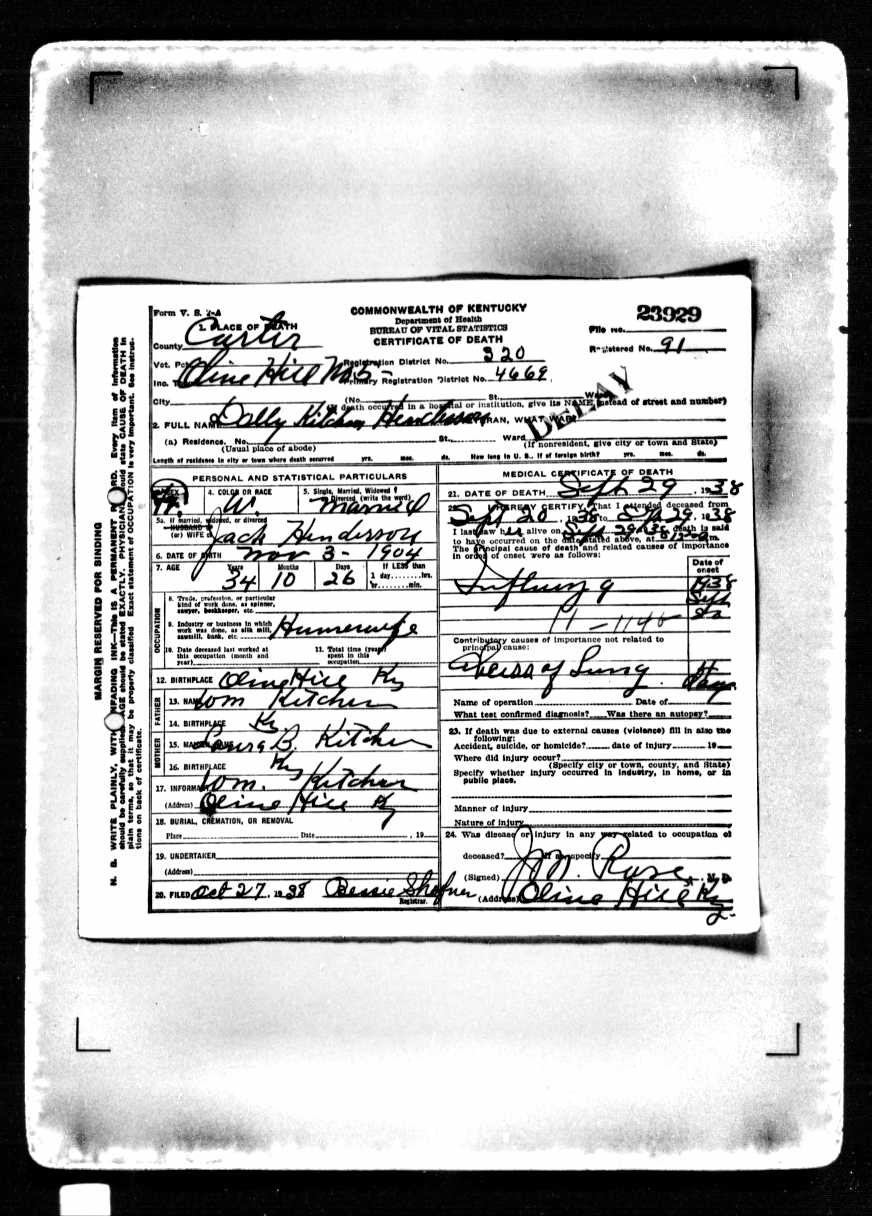 Form V. S. 1-A
COMMONWEALTH OF KENTUCKY
Department of Health
BUREAU OF VITAL STATISTICS
CERTIFICATE OF DEATH
23929
File No.
Registered No. 91
1. PLACE OF DEATH
County Carter
Vot. Pct. Olive Hill No 5
Registration District No. 320
Inc. T
Primary Registration District No. 4669
City (No. St. Ward)
(If death occurred in a hospital or institution, give its NAME instead of street and number)
DELAY
2. FULL NAME Dolly Kitchen Henderson
VETERAN, WHAT WAR
(a) Residence. No. St. Ward
(Usual place of abode)
(If nonresident, give city or town and State)
Length of residence in city or town where death occurred yrs. mos. ds. How long in U. S. If of foreign birth? yrs. mos. ds.
PERSONAL AND STATISTICAL PARTICULARS
3. SEX F.
4. COLOR OR RACE W.
5. Single, Married, Widowed or Divorced (write the word) Married
5a. If married, widowed, or divorced
HUSBAND of
(or) WIFE of Jack Henderson
6. DATE OF BIRTH Nov 3 - 1904
7. AGE Years 34 Months 10 Days 26
If LESS than 1 day hrs. or min.
OCCUPATION
8. Trade, profession, or particular kind of work done, as spinner, sawyer, bookkeeper, etc.
9. Industry or business in which work was done, as silk mill, sawmill, bank, etc. Housewife
10. Date deceased last worked at this occupation (month and year)
11. Total time (years) spent in this occupation
12. BIRTHPLACE Olive Hill Ky
FATHER
13. NAME Tom Kitchen
14. BIRTHPLACE Ky
MOTHER
15. MAIDEN NAME Laura B. Kitchen
16. BIRTHPLACE Ky
17. INFORMANT Tom. Kitchen
(Address) Olive Hill Ky
18. BURIAL, CREMATION, OR REMOVAL
Place Date , 19
19. UNDERTAKER
(Address)
20. FILED Oct 27, 1938 Bessie Shafner
Registrar.
MEDICAL CERTIFICATE OF DEATH
21. DATE OF DEATH Sept 29, 1938
22. I HEREBY CERTIFY, That I attended deceased from
Sept 20, 1938 to Sept 29, 1938
I last saw her alive on Sept 29 1938, death is said
to have occurred on the date stated above, at m.
The principal cause of death and related causes of importance
in order of onset were as follows:
Date of onset
Influenza
1938
Sept
20
Contributory causes of importance not related to
principal cause:
Abcess of Lung
Name of operation Date of
What test confirmed diagnosis? Was there an autopsy?
23. If death was due to external causes (violence) fill in also the
following:
Accident, suicide, or homicide? date of injury 19
Where did injury occur?
(Specify city or town, county, and State)
Specify whether injury occurred in industry, in home, or in
public place.
Manner of injury
Nature of injury
24. Was disease or injury in any way related to occupation of
deceased? If so, specify
(Signed) J. N. Rose, M. D.
(Address) Olive Hill Ky
MARGIN RESERVED FOR BINDING
N. B. WRITE PLAINLY, WITH UNFADING INK—THIS IS A PERMANENT RECORD. Every item of information
should be carefully supplied. AGE should be stated EXACTLY. PHYSICIANS should state CAUSE OF DEATH in
plain terms, so that it may be properly classified. Exact statement of OCCUPATION is very important. See instruc-
tions on back of certificate.